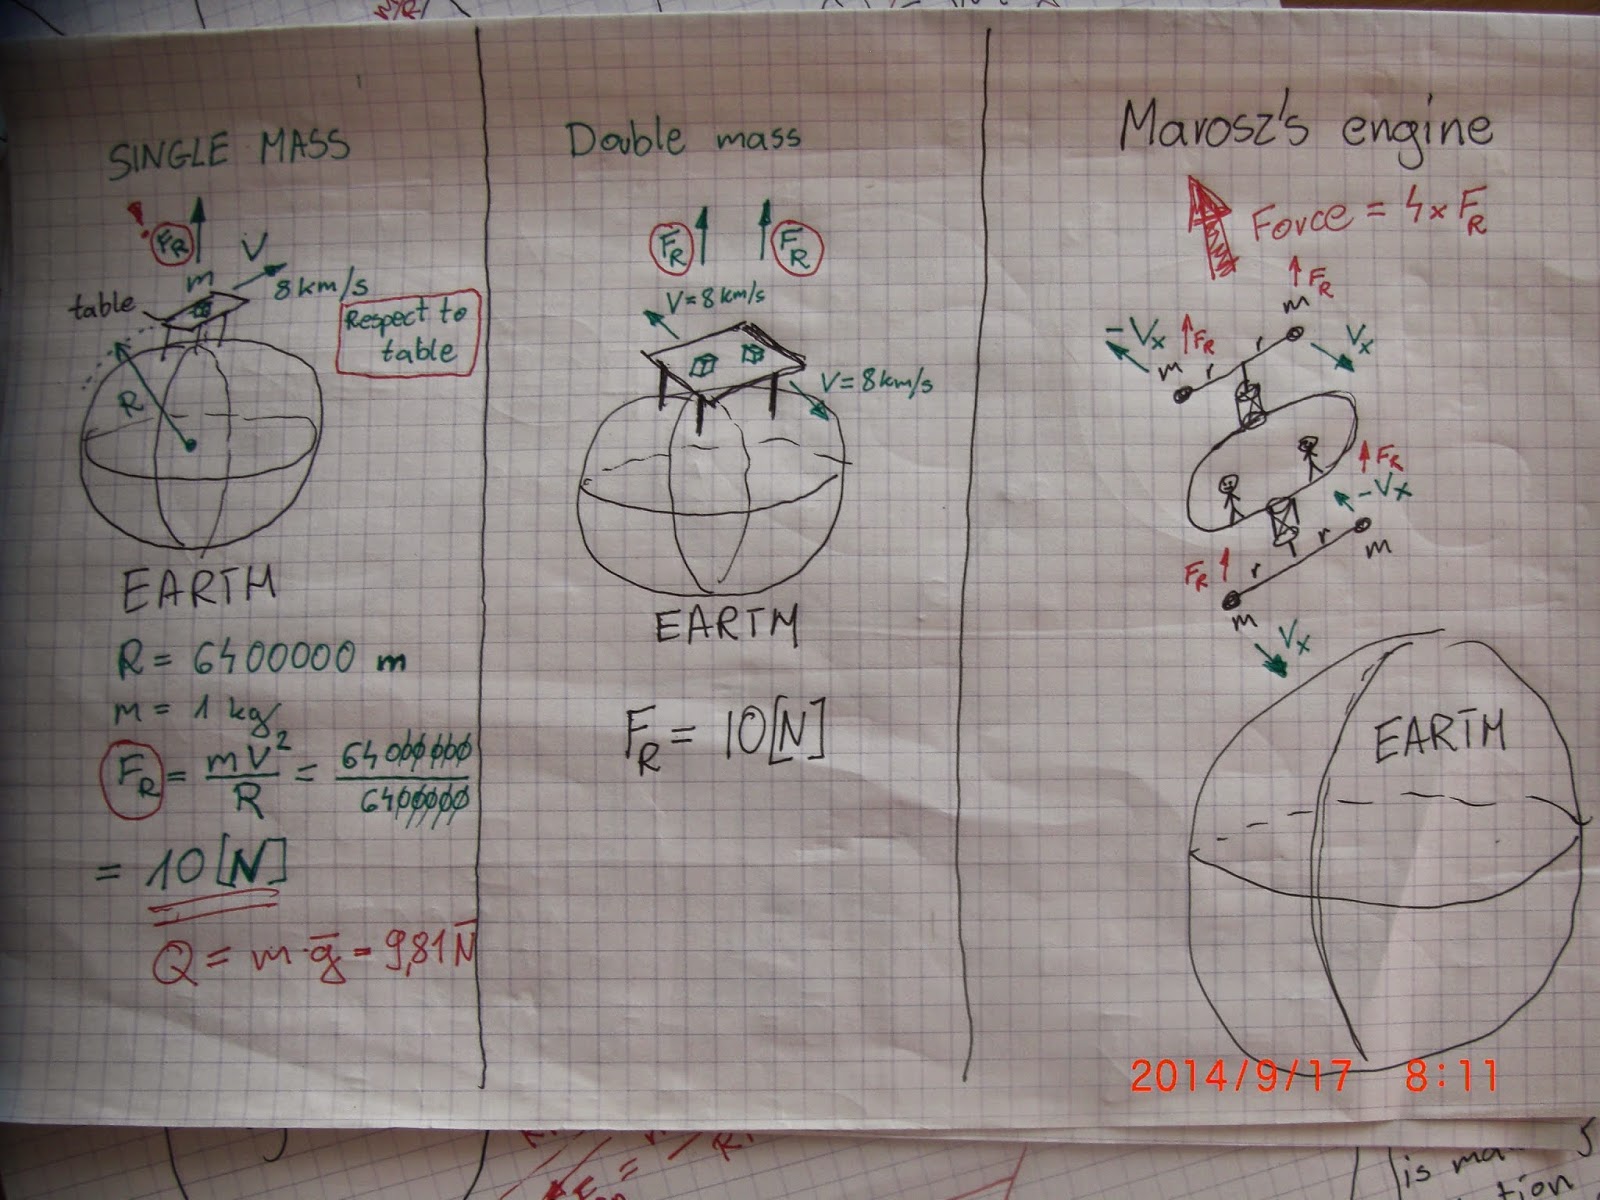 SINGLE MASS
! FR
V
m
8 km/s
table
Respect to
table
R
EARTH
R = 6400000 m
m = 1 kg
FR = mV² / R = 64000000 / 6400000
= 10 [N]
Q = m · g = 9,81 N
Double mass
FR FR
V = 8 km/s
V = 8 km/s
EARTH
FR = 10 [N]
Marosz's engine
Force = 4 x FR
FR
m
-Vx FR Vx
r
m r
FR
-Vx
r
m
FR r
m
Vx
EARTH
2014/9/17 8:11
is
tion